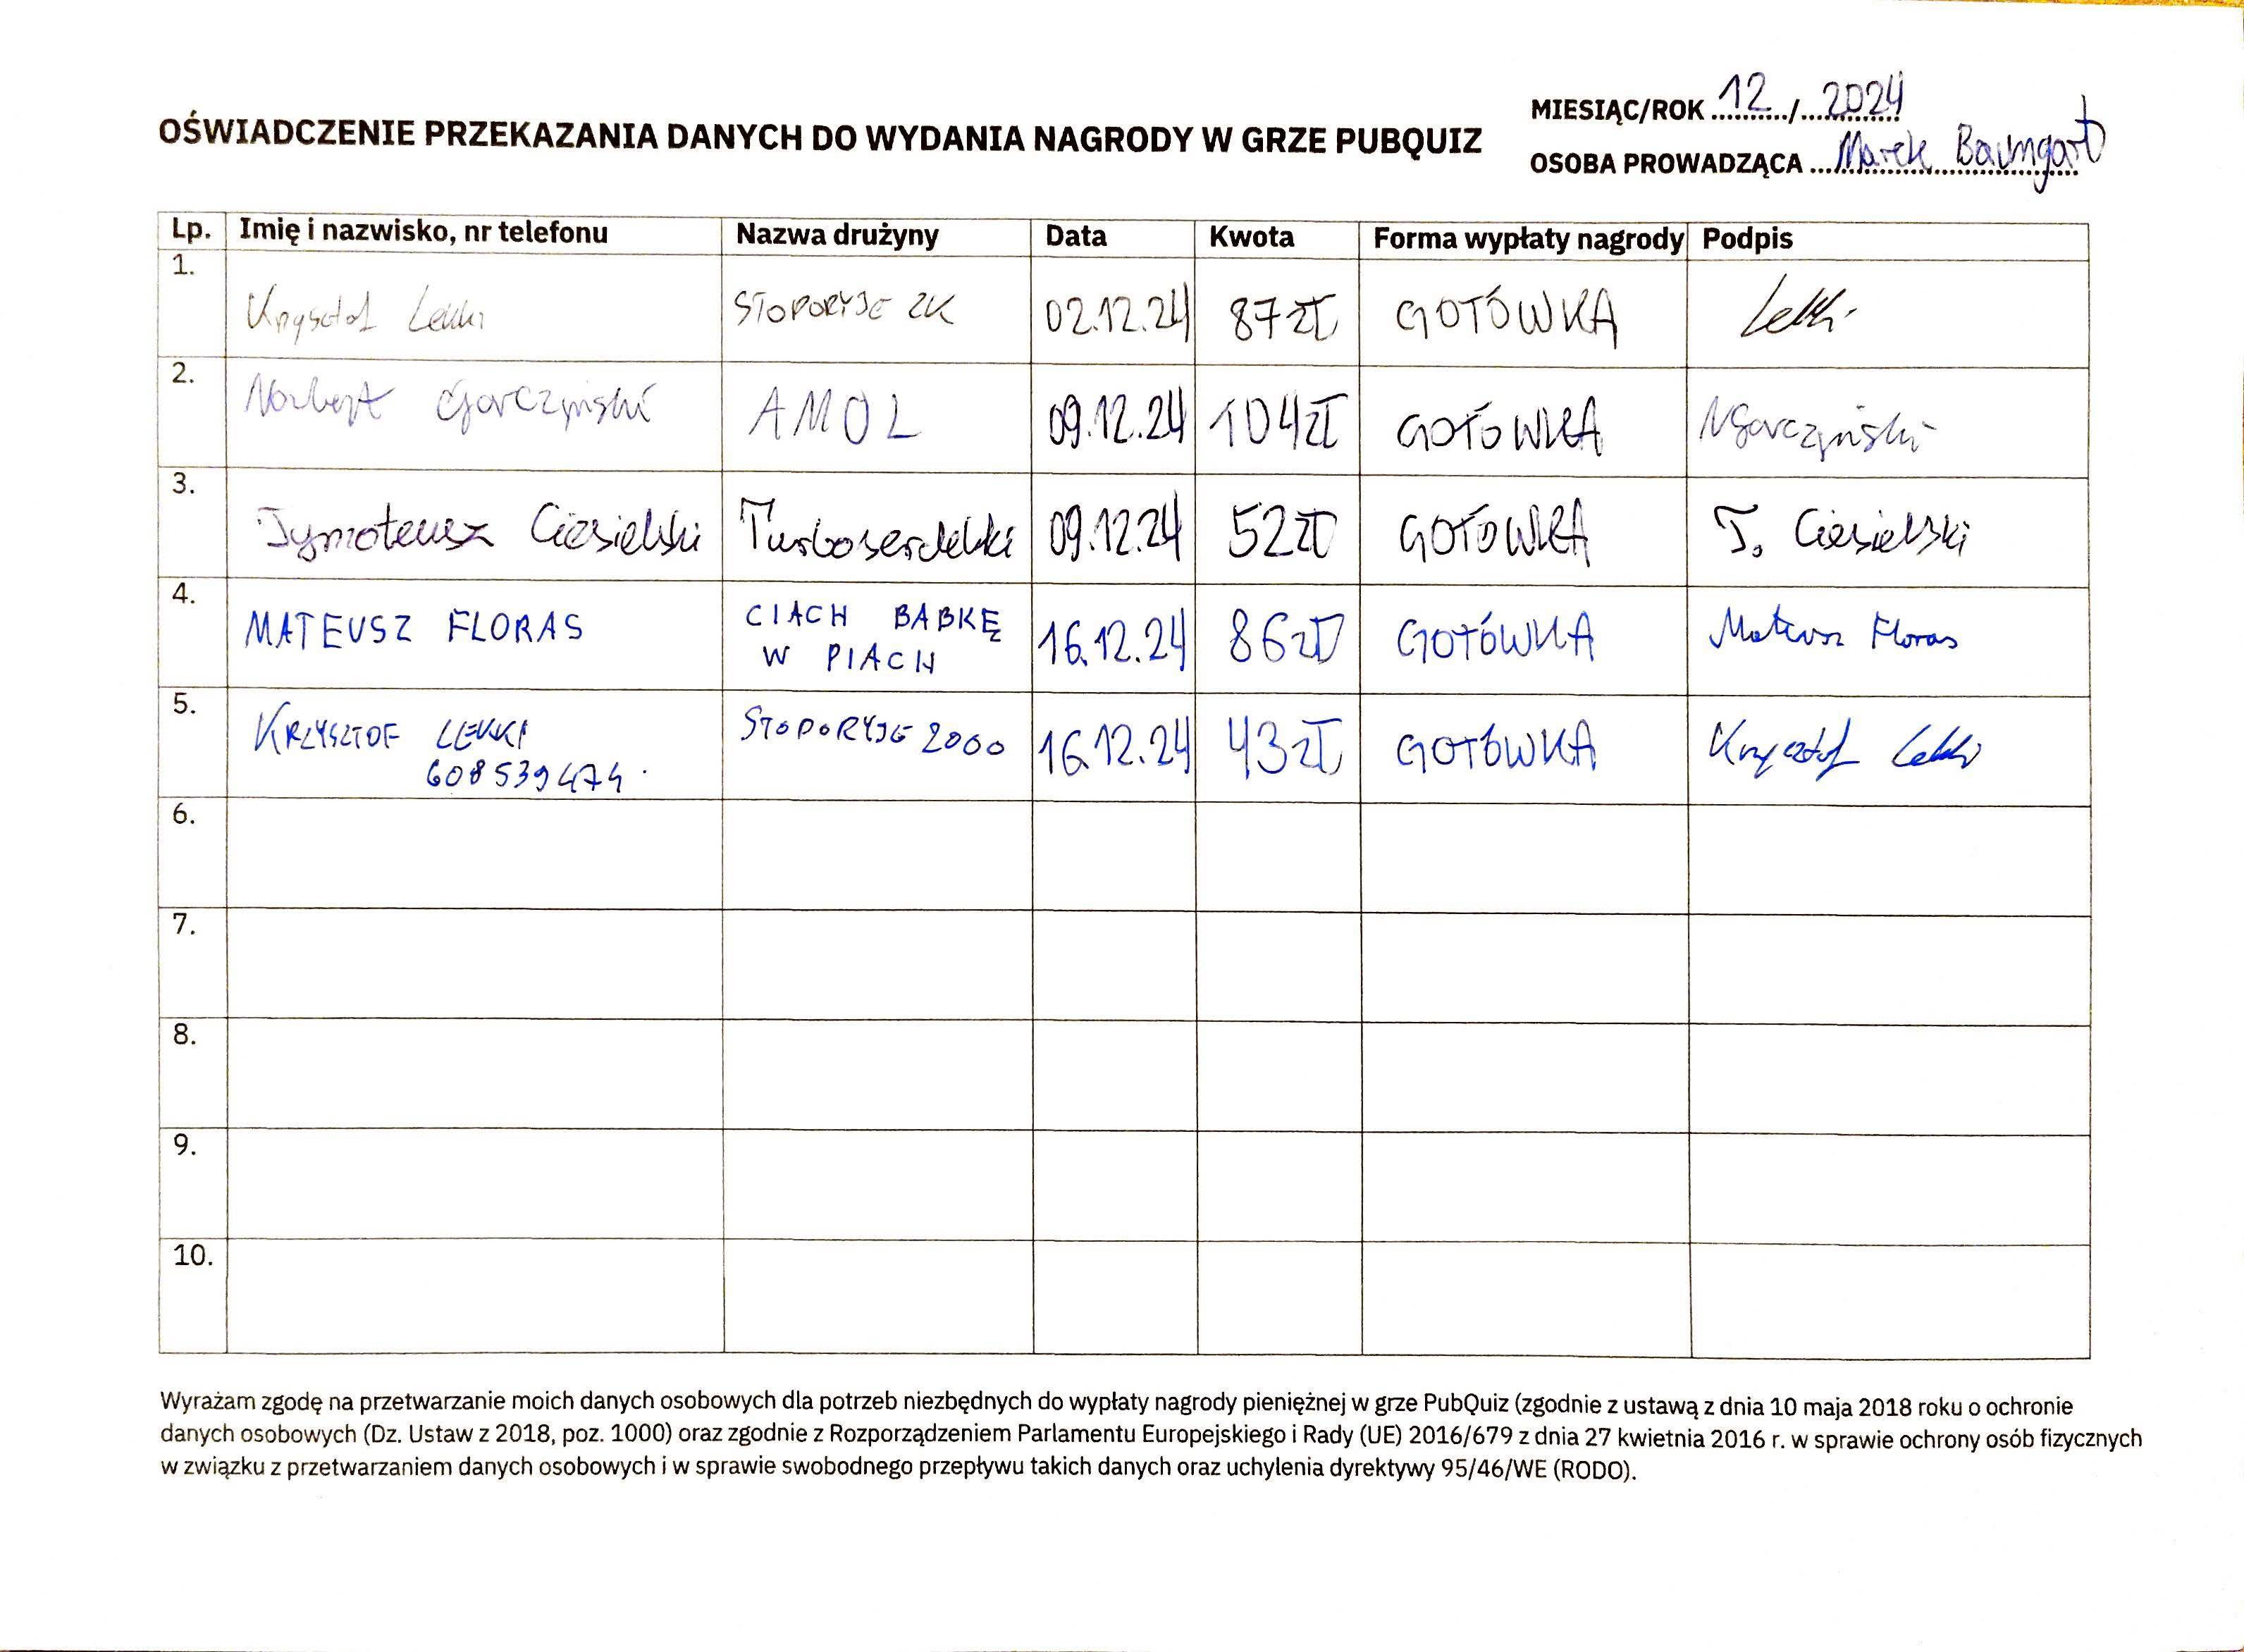 OŚWIADCZENIE PRZEKAZANIA DANYCH DO WYDANIA NAGRODY W GRZE PUBQUIZ
MIESIĄC/ROK 12 / 2024
OSOBA PROWADZĄCA Marek Baumgart
Lp. Imię i nazwisko, nr telefonu Nazwa drużyny Data Kwota Forma wypłaty nagrody Podpis
1. Krzysztof Lekki STOPORYJE 2K 02.12.24 87 zł GOTÓWKA Lekki
2. Norbert Garczyński AMOL 09.12.24 104 zł GOTÓWKA NGarczyński
3. Tymoteusz Ciesielski Turboserdelki 09.12.24 52 zł GOTÓWKA T. Ciesielski
4. MATEUSZ FLORAS CIACH BABKĘ W PIACH 16.12.24 86 zł GOTÓWKA Mateusz Floras
5. KRZYSZTOF LEKKI 608539474 STOPORYJE 2000 16.12.24 43 zł GOTÓWKA Krzysztof Lekki
6.
7.
8.
9.
10.
Wyrażam zgodę na przetwarzanie moich danych osobowych dla potrzeb niezbędnych do wypłaty nagrody pieniężnej w grze PubQuiz (zgodnie z ustawą z dnia 10 maja 2018 roku o ochronie
danych osobowych (Dz. Ustaw z 2018, poz. 1000) oraz zgodnie z Rozporządzeniem Parlamentu Europejskiego i Rady (UE) 2016/679 z dnia 27 kwietnia 2016 r. w sprawie ochrony osób fizycznych
w związku z przetwarzaniem danych osobowych i w sprawie swobodnego przepływu takich danych oraz uchylenia dyrektywy 95/46/WE (RODO).